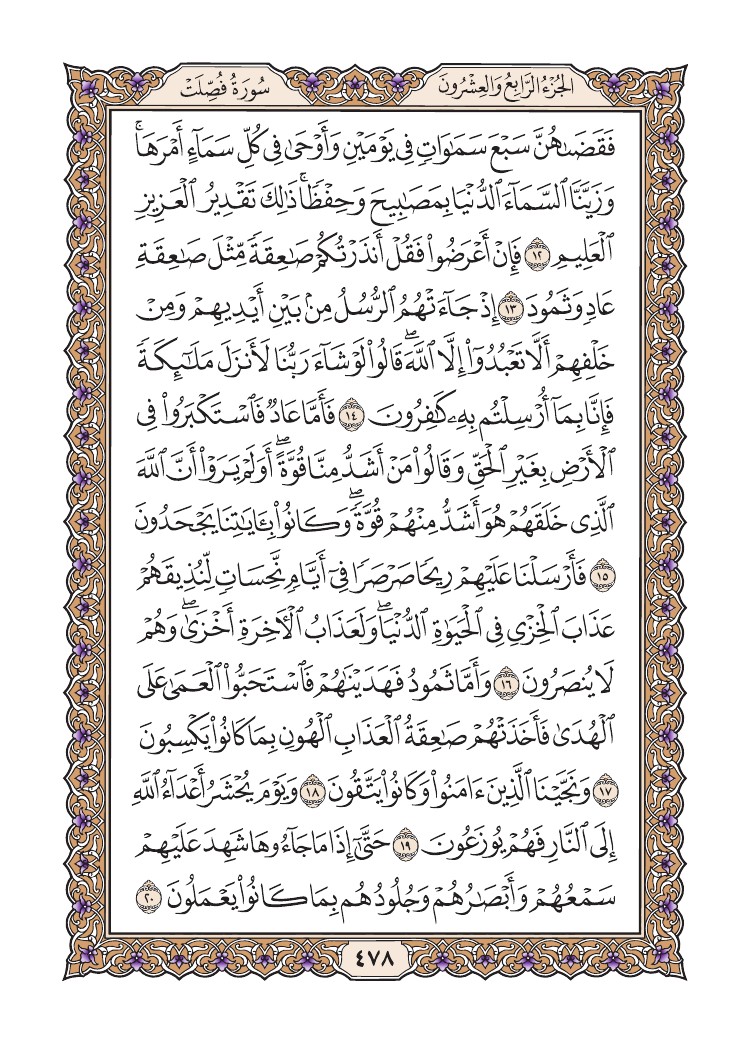 الجزء الرابع والعشرون
سورة فصلت
فَقَضَىٰهُنَّ سَبْعَ سَمَٰوَاتٍ فِي يَوْمَيْنِ وَأَوْحَىٰ فِي كُلِّ سَمَآءٍ أَمْرَهَاۚ
وَزَيَّنَّا ٱلسَّمَآءَ ٱلدُّنْيَا بِمَصَٰبِيحَ وَحِفْظٗاۚ ذَٰلِكَ تَقْدِيرُ ٱلْعَزِيزِ
ٱلْعَلِيمِ ١٢ فَإِنْ أَعْرَضُوا۟ فَقُلْ أَنذَرْتُكُمْ صَٰعِقَةٗ مِّثْلَ صَٰعِقَةِ
عَادٖ وَثَمُودَ ١٣ إِذْ جَآءَتْهُمُ ٱلرُّسُلُ مِنۢ بَيْنِ أَيْدِيهِمْ وَمِنْ
خَلْفِهِمْ أَلَّا تَعْبُدُوٓا۟ إِلَّا ٱللَّهَۖ قَالُوا۟ لَوْ شَآءَ رَبُّنَا لَأَنزَلَ مَلَٰٓئِكَةٗ
فَإِنَّا بِمَآ أُرْسِلْتُم بِهِۦ كَٰفِرُونَ ١٤ فَأَمَّا عَادٞ فَٱسْتَكْبَرُوا۟ فِي
ٱلْأَرْضِ بِغَيْرِ ٱلْحَقِّ وَقَالُوا۟ مَنْ أَشَدُّ مِنَّا قُوَّةًۖ أَوَلَمْ يَرَوْا۟ أَنَّ ٱللَّهَ
ٱلَّذِي خَلَقَهُمْ هُوَ أَشَدُّ مِنْهُمْ قُوَّةٗۖ وَكَانُوا۟ بِـَٔايَٰتِنَا يَجْحَدُونَ
١٥ فَأَرْسَلْنَا عَلَيْهِمْ رِيحٗا صَرْصَرٗا فِيٓ أَيَّامٖ نَّحِسَاتٖ لِّنُذِيقَهُمْ
عَذَابَ ٱلْخِزْيِ فِي ٱلْحَيَوٰةِ ٱلدُّنْيَاۖ وَلَعَذَابُ ٱلْأٓخِرَةِ أَخْزَىٰۖ وَهُمْ
لَا يُنصَرُونَ ١٦ وَأَمَّا ثَمُودُ فَهَدَيْنَٰهُمْ فَٱسْتَحَبُّوا۟ ٱلْعَمَىٰ عَلَى
ٱلْهُدَىٰ فَأَخَذَتْهُمْ صَٰعِقَةُ ٱلْعَذَابِ ٱلْهُونِ بِمَا كَانُوا۟ يَكْسِبُونَ
١٧ وَنَجَّيْنَا ٱلَّذِينَ ءَامَنُوا۟ وَكَانُوا۟ يَتَّقُونَ ١٨ وَيَوْمَ يُحْشَرُ أَعْدَآءُ ٱللَّهِ
إِلَى ٱلنَّارِ فَهُمْ يُوزَعُونَ ١٩ حَتَّىٰٓ إِذَا مَا جَآءُوهَا شَهِدَ عَلَيْهِمْ
سَمْعُهُمْ وَأَبْصَٰرُهُمْ وَجُلُودُهُم بِمَا كَانُوا۟ يَعْمَلُونَ ٢٠
٤٧٨